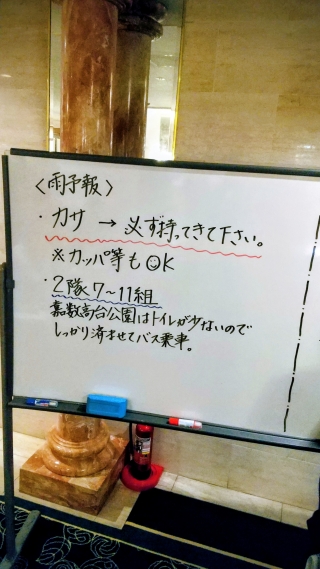 〈雨予報〉
・カサ → 必ず持ってきて下さい。
※カッパ等も☺OK
・2隊7～11組
嘉数高台公園はトイレが少ないので
しっかり済ませてバス乗車。